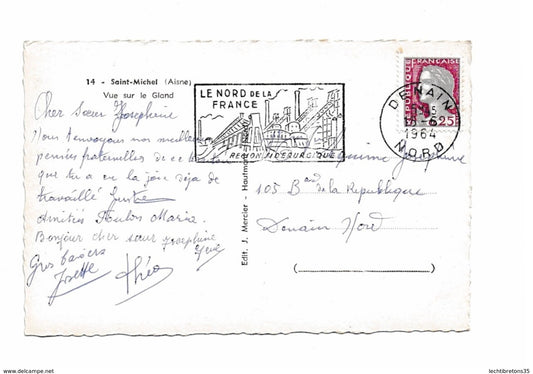 14 - Saint-Michel (Aisne)
Vue sur le Gland
Cher Sœur Josephine
Nous t'envoyons nos meilleures
pensées fraternelles de ce
que tu a eu la joie déja de
travaillé
Amitiés Maria
Bonjour cher sœur Josephine
Gros baisers
Josette Théo
Edit. J. Mercier - Hautmont
LE NORD DE LA
FRANCE
REGION SIDERURGIQUE
REPUBLIQUE FRANCAISE
0,25
DENAIN
1964
NORD
Josephine
105 Bard de la Republique
Denain Nord
(
)
www.delcampe.net
lechtbretons35